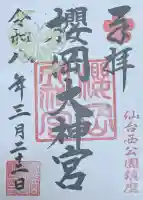 奉拝
櫻岡大神宮
仙台西公園鎮座
令和八年三月二十二日